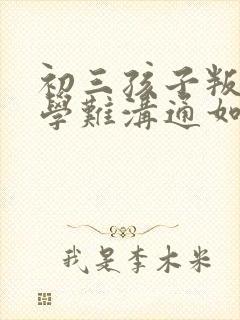 初三孩子叛
學難溝通如
我是李木米